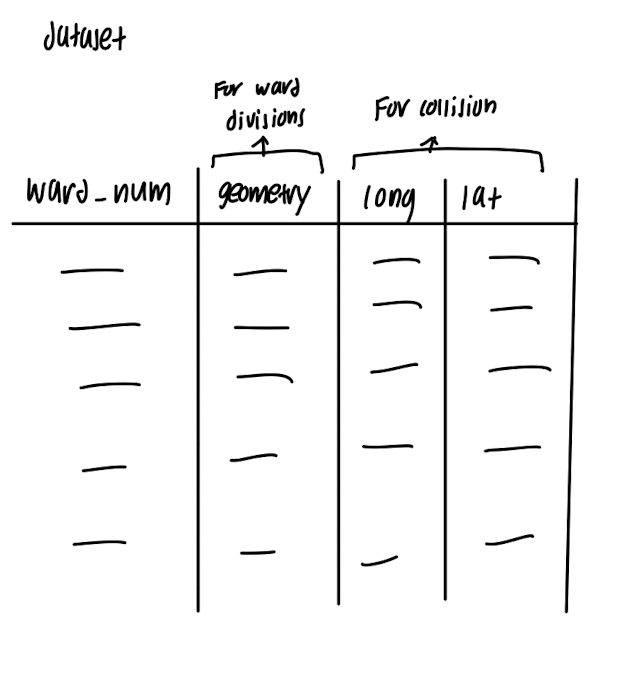 dataset
For ward
divisions
For collision
ward_num geometry long lat